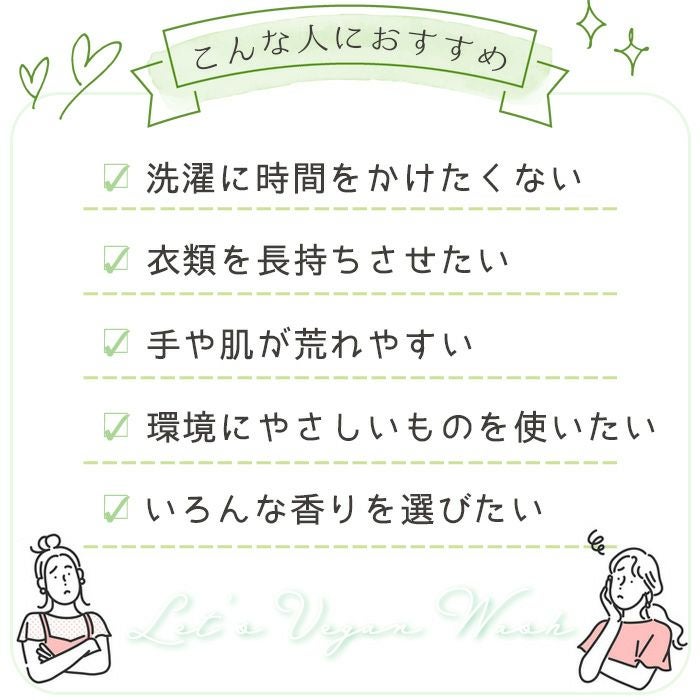 こんな人におすすめ
洗濯に時間をかけたくない
衣類を長持ちさせたい
手や肌が荒れやすい
環境にやさしいものを使いたい
いろんな香りを選びたい
Let's Vegan Wash